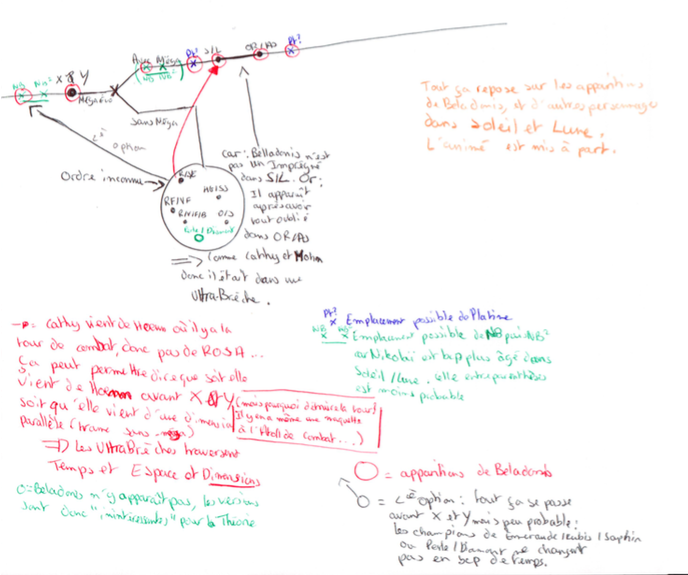 Avec Méga
Pt²
S/L
OR/AS
Pt²
NB NB²
X & Y
(NB NB²)
MégaEvo
sans Méga
2è option
Ordre inconnu
RSE
HG/SS
RF/VF
R/V/F/B
O/S
Perle/Diamant
car : Belladonis n'est
pas un Imprégné
dans S/L. Or :
Il apparaît
après avoir
tout oublié
dans OR/AS
⇒ Comme Cathy et Mohn
donc il était dans une
UltraBrèche.
Tout ça repose sur les apparitions
de Beladonis, et d'autres personnages
dans Soleil et Lune.
L'animé est mis à part.
→ = Cathy vient de Hoenn où il y a la
tour de combat, donc pas de ROSA...
Ça peut permettre dire que soit elle
vient de Hoenn avant X & Y
(mais pourquoi la tour?
Il y en a même une maquette
à l'Atoll de Combat...)
soit qu'elle vient d'une dimension
parallèle (trame sans méga)
⇒ Les UltraBrèches traversent
Temps et Espace et Dimensions
O = Beladonis n'y apparaît pas, les versions
sont donc "inintéressantes" pour la Théorie
Pt²
x Emplacement possible de Platine
NB NB²
x x Emplacement possible de NB puis NB²
car Nikolaï est bcp plus âgé dans
Soleil/Lune. Celle entre parenthèses
est moins probable
O = apparitions de Beladonis
O = 2è option : tout ça se passe
avant X et Y mais peu probable :
les champions de Emeraude/Rubis/Saphir
ou Perle/Diamant ne changent
pas en bcp de temps.